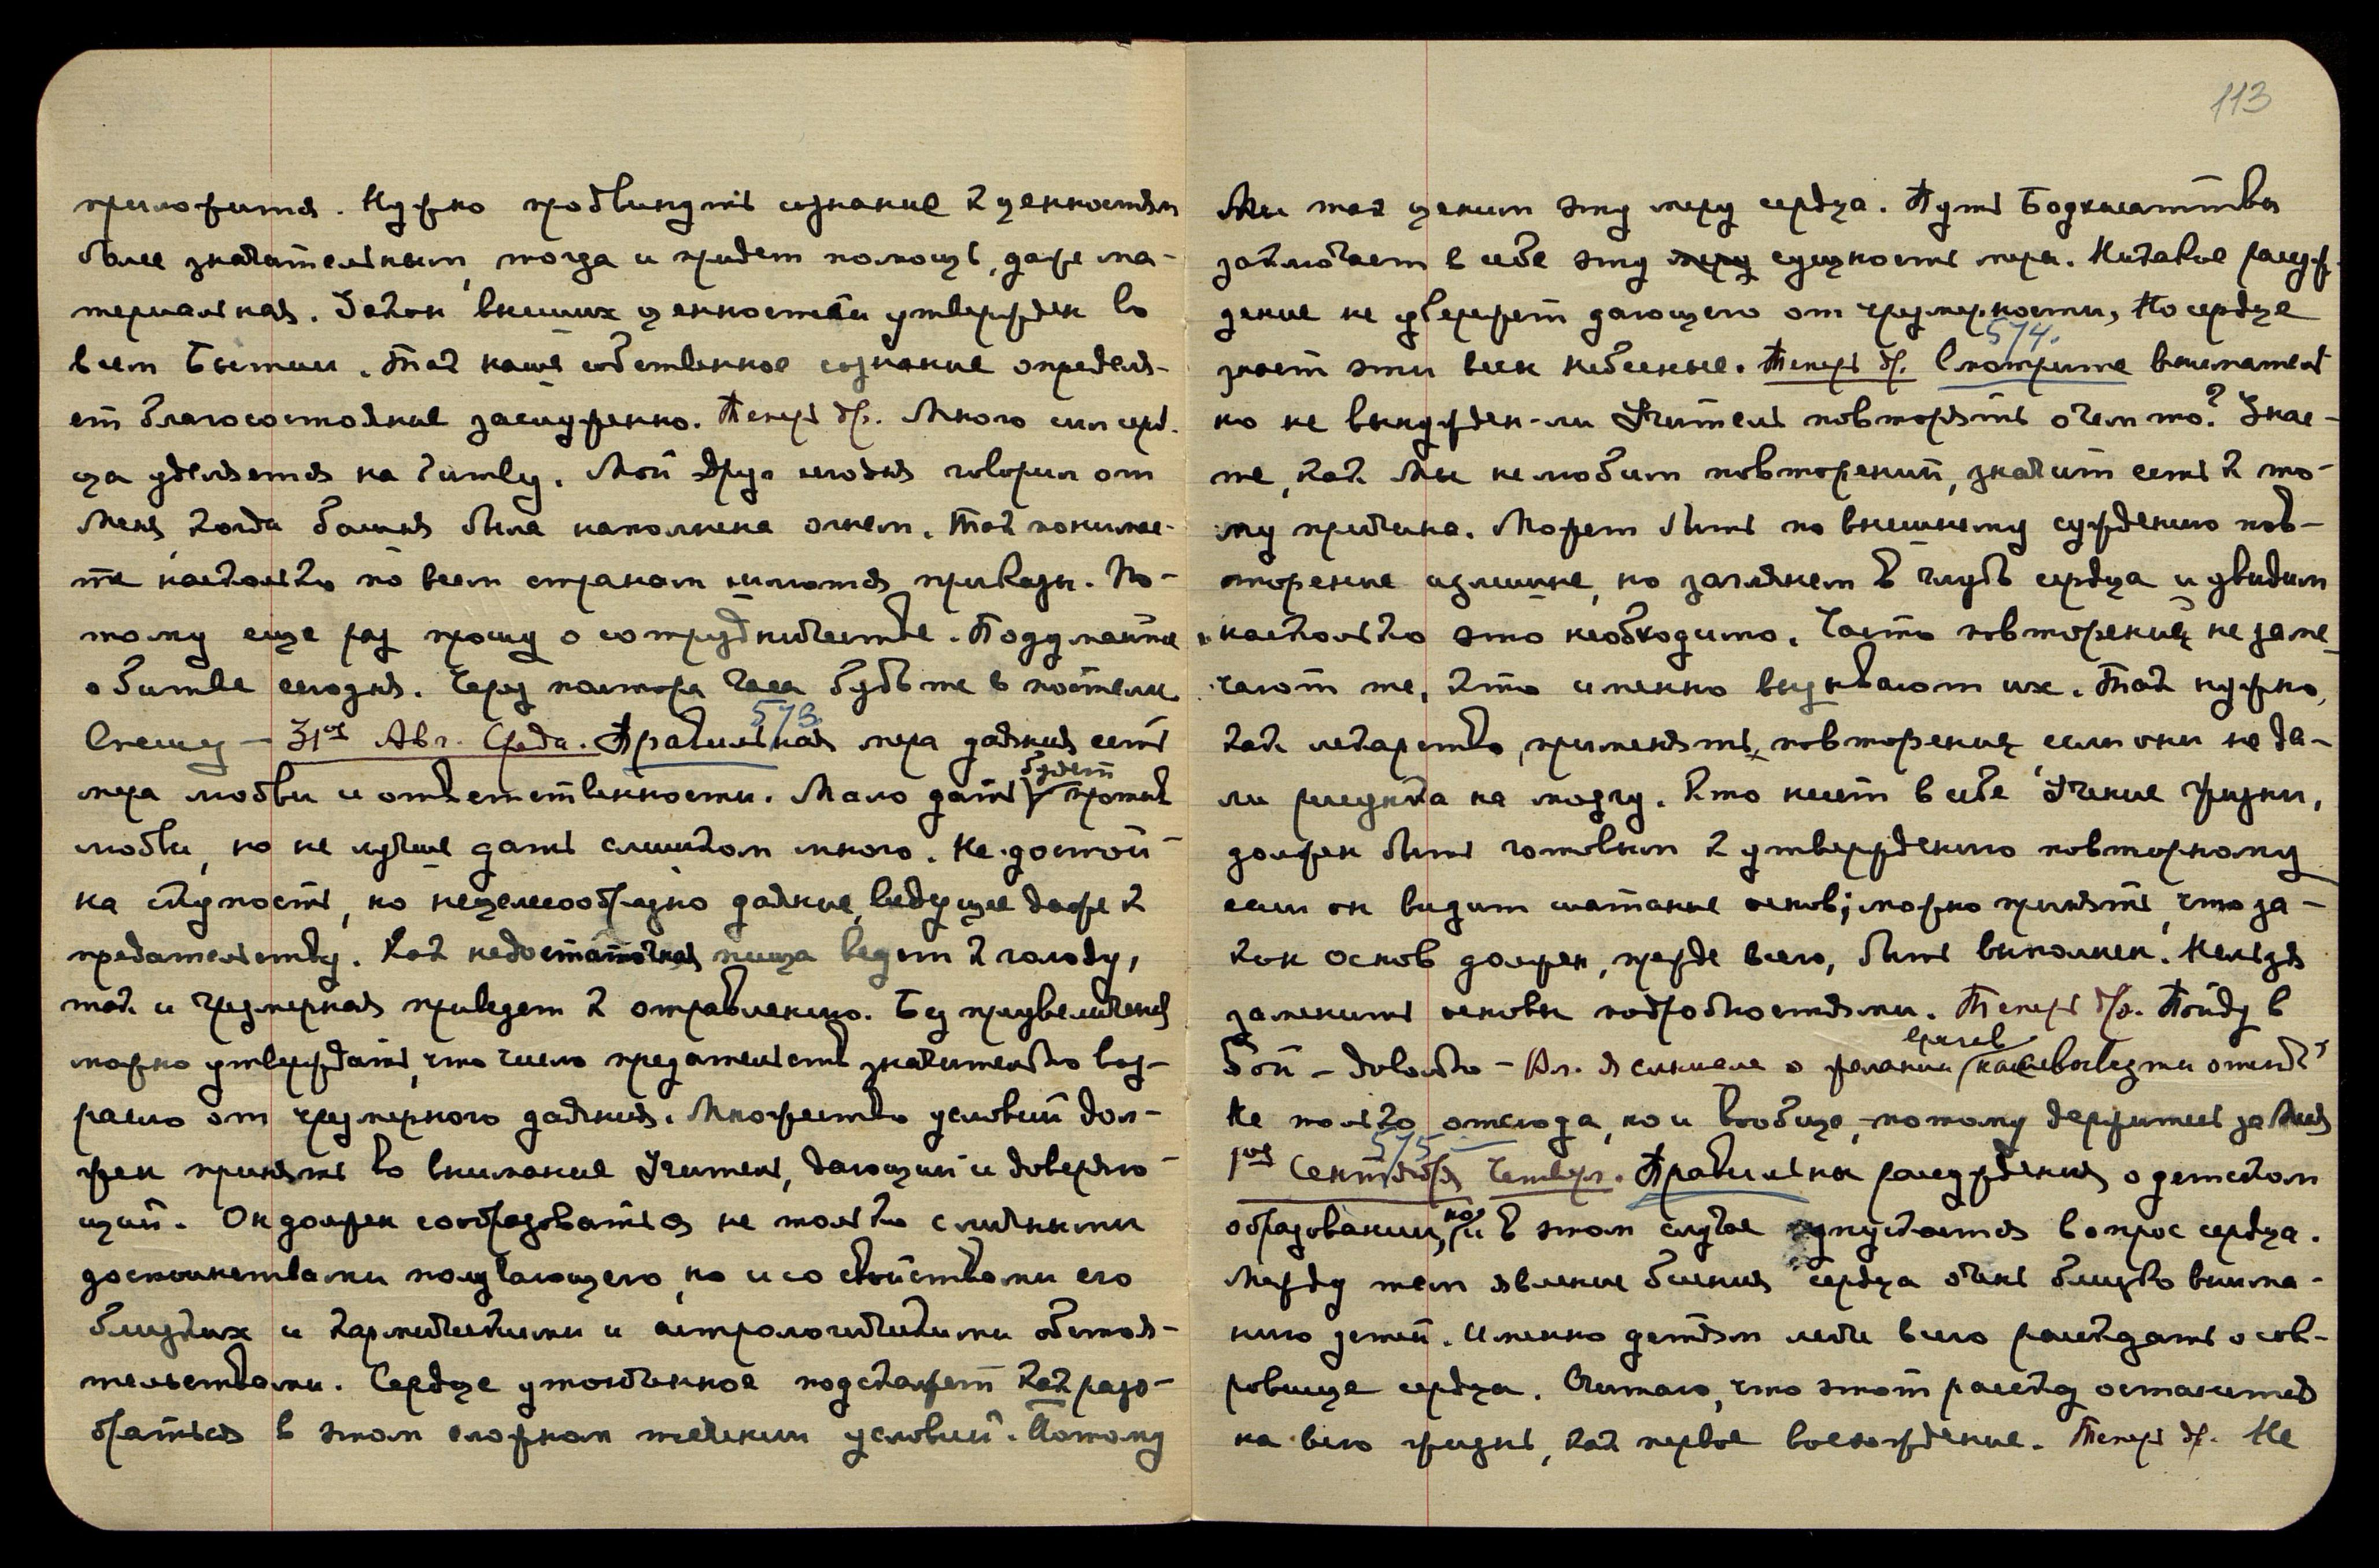 приложится. Нужно продвинуть сознание к ценностям
более значительным, тогда и придет помощь, даже ма-
териальная. Закон высших ценностей утвержден во
всем Бытии. Так наше собственное сознание определя-
ет благосостояние заслуженно. Теперь др. Много сил серд-
ца уделяется на битву. Мой Друг сегодня говорил от
Меня, когда башня была наполнена огнем. Так понимае-
те насколько по всем странам шлются приказы. По-
тому еще раз прошу о сотрудничестве. Подумайте
о битве сегодня. Через полтора часа будьте в постели.
573.
Спешу — 31ое Авг. Среда. Правильная мера даяния есть
мера любви и ответственности. Мало дать будет против
любви, но не лучше дать слишком много. Недостой-
на скупость, но нецелесообразно даяние, ведущее даже к
предательству. Как недостаточная пища ведет к голоду,
так и чрезмерная приведет к отравлению. Без преувеличения
можно утверждать, что число предательств значительно воз-
росло от чрезмерного даяния. Множество условий дол-
жен принять во внимание Учитель, дающий и доверяю-
щий. Он должен сообразоваться не только с личными
достоинствами получающего, но и со свойствами его
близких и кармическими и астрологическими обстоя-
тельствами. Сердце утонченное подскажет как разо-
браться в этом сложном течении условий. Потому
113
Мы так ценим эту меру сердца. Путь Бодхисаттвы
заключает в себе эту меру сущность меры. Никакое рассуж-
дение не убережет дающего от чрезмерности, Но сердце
574.
знает эти весы небесные. Теперь др. Смотрите вниматель-
но не вынужден-ли Учитель повторять о чем то? Знае-
те, как Мы не любим повторений, значит есть к то-
му причина. Может быть по внешнему суждению пов-
торение излишне, но заглянем в глубь сердца и увидим
насколько это необходимо. Часто повторения не заме-
чают те, кто именно вынуждают их. Так нужно,
как лекарство, применять повторения, если они не да-
ли рисунка на мозгу. Кто несет в себе Учение Жизни,
должен быть готовым к утверждению повторному
если он видит шатание основ; можно принять, что за-
кон Основ должен, прежде всего, быть выполнен. Нельзя
заменить основы подробностями. Теперь др. Пойду в
бой — довольно — Вл. я слышала о желании врагов нас вывезти отсюда?
Не только отсюда, но и вообще, — потому держитесь за Меня
575
1ое Сентября Четверг. Правильны рассуждения о детском
образовании, но и в этом случае упускается вопрос сердца.
Между тем явление биения сердца очень близко внима-
нию детей. Именно детям легче всего рассказать о сок-
ровище сердца. Считаю, что этот рассказ останется
на всю жизнь, как первое восхождение. Теперь др. Не